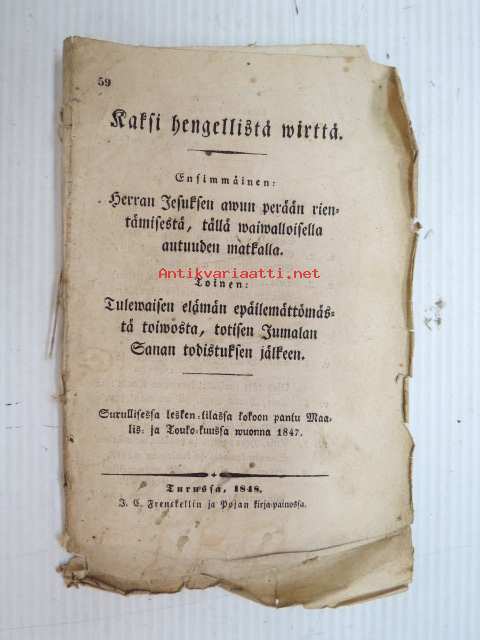 59
Kaksi hengellistä wirttä.
Ensimmäinen:
Herran Jesuksen awun perään rien=
tämisestä, tällä waiwalloisella
autuuden matkalla.
Antikvariaatti.net
Toinen:
Tulewaisen elämän epäilemättömäs=
tä toiwosta, totisen Jumalan
Sanan todistuksen jälkeen.
Surullisessa lesken=tilassa kokoon pantu Maa=
lis= ja Touko=kuussa wuonna 1847.
Turussa, 1848.
J. C. Frenckellin ja Pojan kirja=painossa.